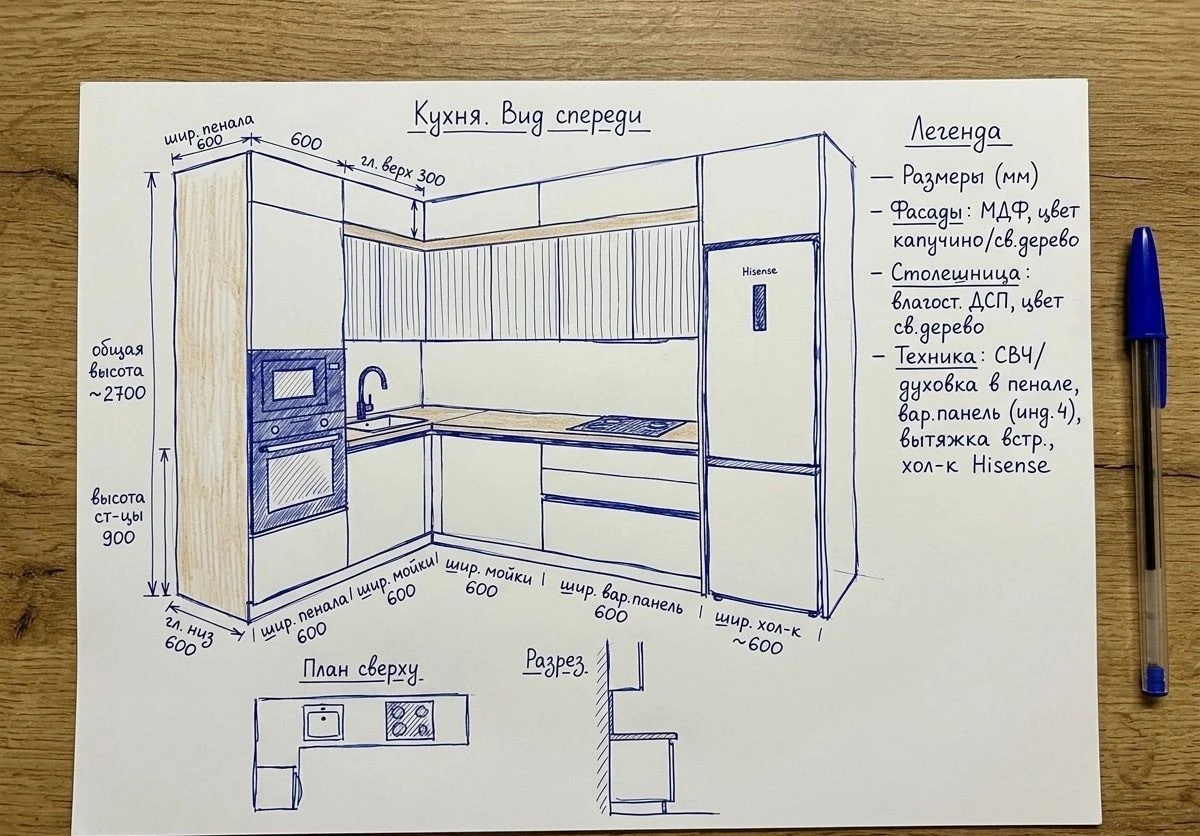 Кухня. Вид спереди
шир. пенала
600
600
гл. верх 300
общая
высота
~2700
высота
ст-цы
900
гл. низ
600
Hisense
шир. пенала
600
шир. мойки
600
шир. мойки
600
шир. вар.панель
600
шир. хол-к
~600
Легенда
— Размеры (мм)
– Фасады: МДФ, цвет
капучино/св.дерево
– Столешница:
влагост. ДСП, цвет
св.дерево
– Техника: СВЧ/
духовка в пенале,
вар.панель (инд.4),
вытяжка встр.,
хол-к Hisense
План сверху
Разрез